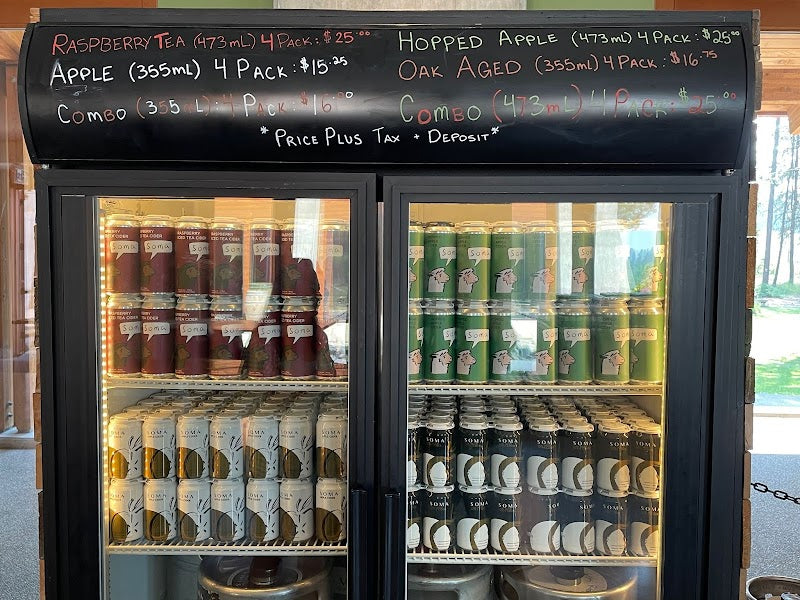 RASPBERRY TEA (473mL) 4 PACK: $25.00
APPLE (355mL) 4 PACK: $15.25
COMBO (355mL): 4 PACK: $16.00
HOPPED APPLE (473mL) 4 PACK: $25.00
OAK AGED (355mL) 4 PACK: $16.75
COMBO (473mL) 4 PACK: $25.00
*PRICE PLUS TAX + DEPOSIT*
RASPBERRY ICED TEA CIDER
soma
soma
SOMA
SOMA